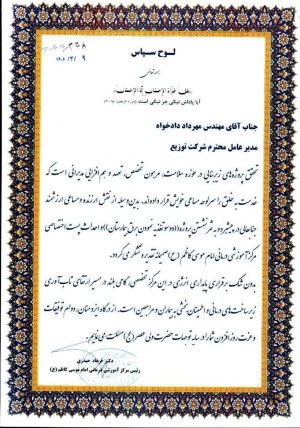 لوح سپاس
هَلْ جَزَاءُ الْإِحْسَانِ إِلَّا الْإِحْسَانُ
آیا پاداش نیکی جز نیکی است
جناب آقای مهندس مهرداد دادخواه
مدیر عامل محترم شرکت توزیع
تحقق پروژه‌های زیربنایی در حوزه سلامت، مرهون تخصص، تعهد و هم افزایی مدیرانی است که
خدمت به خلق را سرلوحه مساعی خویش قرار داده‌اند. بدین وسیله از نقش ارزنده و مساعی ارزشمند
جنابعالی در پیشبرد و به ثمر نشستن پروژه ((دوسو تغذیه نمودن برق بیمارستان)) و احداث پست اختصاصی
مرکز آموزشی درمانی امام موسی کاظم (ع) صمیمانه تقدیر و تشکر می‌گردد.
بدون شک برقراری پایداری انرژی در این مرکز تخصصی، گامی بلند در مسیر ارتقای تاب آوری
زیرساخت‌های درمانی و اطمینان بخشی به بیماران و مراجعین است. از درگاه ایزد منان، دوام توفیقات
و عزت روزافزون شما را در سایه توجهات حضرت ولی عصر (عج) مسئلت می‌نمایم.
دکتر فرهاد حیدری
رئیس مرکز آموزشی درمانی امام موسی کاظم (ع)